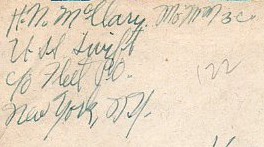 H.V. McClary. MoMM3c.
U.S.S. Swift
c/o Fleet P.O.
New York, N.Y.
122